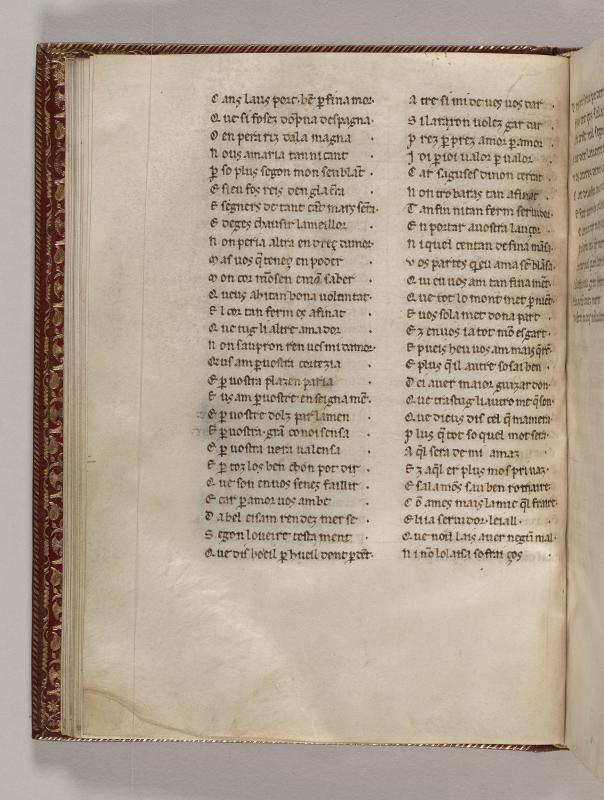 C ans laus port. bẽ p̱ fina mor.
Q ue si fosez dōpna despagna.
O en perariz dala magna .
N ous amaria tan ni cant .
P̱ so plus segon mon senblãt .
E sieu fos reis den glat̃ra .
E segners de tant cũ mars sẽra.
E deges chausir la meillor .
N on peria altra en dreç damor.
M as vos q̃ teneç en poder .
M on cor mõ sen emõ saber .
Q ueus ahi tan bona volentat.
E l cor tan ferm es afinat .
Q ue tug li altre amador .
N on saupron ren ves mi damor.
Q eus am p̱ uostra cortezia .
E p̱ uostra plazen paria .
E us am p̱ uostre enseigna mẽt.
E p̱ uostre dolz parlamen .
E p̱ uostra. grã conoisensa .
E p̱ uostra vera valensa .
E p̱ toz los ben chon pot dir .
Q ue son en vos senes faillir .
E car p̱ amor vos am be .
D abel eisam ren dez merse .
S egon loueire testa ment .
Q ue dis hoeil p̱ hueil dent p̱ dẽt.
A tre si mi de ves vos dar .
S i lararon volez gardar .
P rez p̱ prez amor p̱ amor .
J oi p̱ ioi valor p̱ valor .
C ar saguses dinon cercat .
N on trobaras tan afinat .
T an fin ni tan ferm seruidor.
E n portar auostra lauçor .
N i quel centan de fina mãsa.
V os partes q̱ eu ama sẽ blãsa.
Q iu eu vos am tan fina mẽt.
Q ue tot lo mont met p̱ niẽt.
E vos sola met dona part .
E z en vos ia tot mõ esgart .
E pueis heu vos am mais q̃ rẽ.
E plus q̃ il autre so sai ben .
D ei auer maior guizardon.
Q ue trastug li autro me q̃ son.
Q ue dieus dis cel q̃ mamera.
P lus q̃ tot so quel mot sera.
A q̃l sera de mi. amaz .
E z aq̃l er plus mos privaz.
E salamõs sau ben romanre.
C õ ames mais lamic q̃l fraire.
E li ia seruidor. leiall .
Q ue noill lais auer negũ mal.
N i nõ lo laisa sofrai ços .